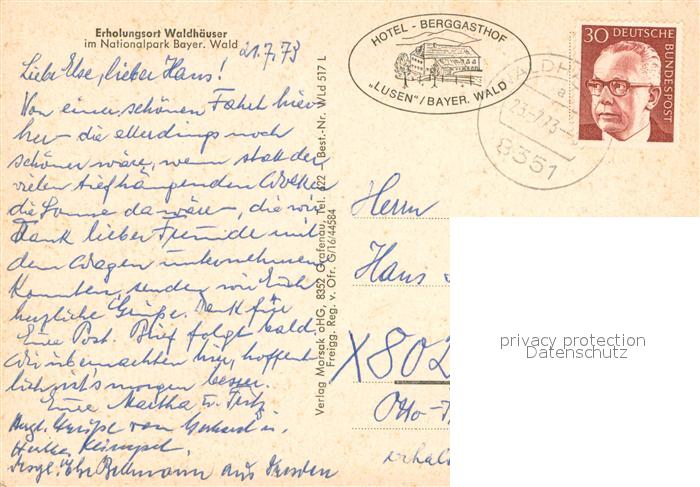 Erholungsort Waldhäuser
im Nationalpark Bayer. Wald
21.7.73
Liebe Else, lieber Hans!
Von einer schönen Fahrt hier
her – die allerdings noch
schöner wäre, wenn statt der
vielen tiefhängenden Wolken
die Sonne da wäre –, die wir
Dank lieber Freunde mit
dem Wagen unternehmen
konnten, senden wir Euch
herzliche Grüße. Dank für
Eure Post. Brief folgt bald.
Wir übernachten hier, hoffent
lich ist's morgen besser.
Eure Martha u. Fritz
Herzl. Grüße von Gerhard u.
Desgl. Bellmann aus Dresden
Verlag Morsak oHG, 8352 Grafenau, Tel. 622 Best.-Nr. WLd 517 L
Freigg. Reg. v. Ofr. G/16/44584
HOTEL - BERGGASTHOF
„LUSEN"/BAYER. WALD
a
23.-7.73
8351
30 DEUTSCHE
BUNDESPOST
Herrn
Hans
X802
Otto-
privacy protection
Datenschutz